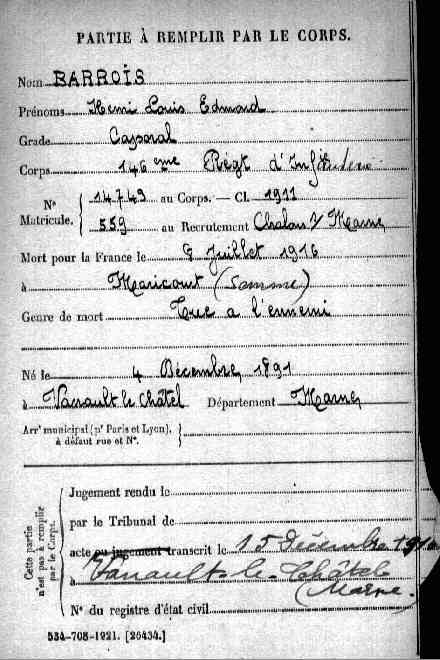 PARTIE À REMPLIR PAR LE CORPS.
Nom BARROIS
Prénoms Henri Louis Edmond
Grade Caporal
Corps 146 eme Régt d'Infanterie
N° Matricule. { 14743 au Corps. — Cl. 1911
559 au Recrutement Chalon s/ Marne
Mort pour la France le 8 Juillet 1916
à Maricourt (Somme)
Genre de mort Tué a l'ennemi
Né le 4 Décembre 1891
à Vanault le Châtel Département Marne
Arr' municipal (p' Paris et Lyon),
à défaut rue et N°.
Cette partie n'est pas à remplir par le Corps.
Jugement rendu le
par le Tribunal de
acte ou jugement transcrit le 15 Décembre 1916
à Vanault-le-Châtel
(Marne.)
N° du registre d'état civil
534-708-1921. [26434.]